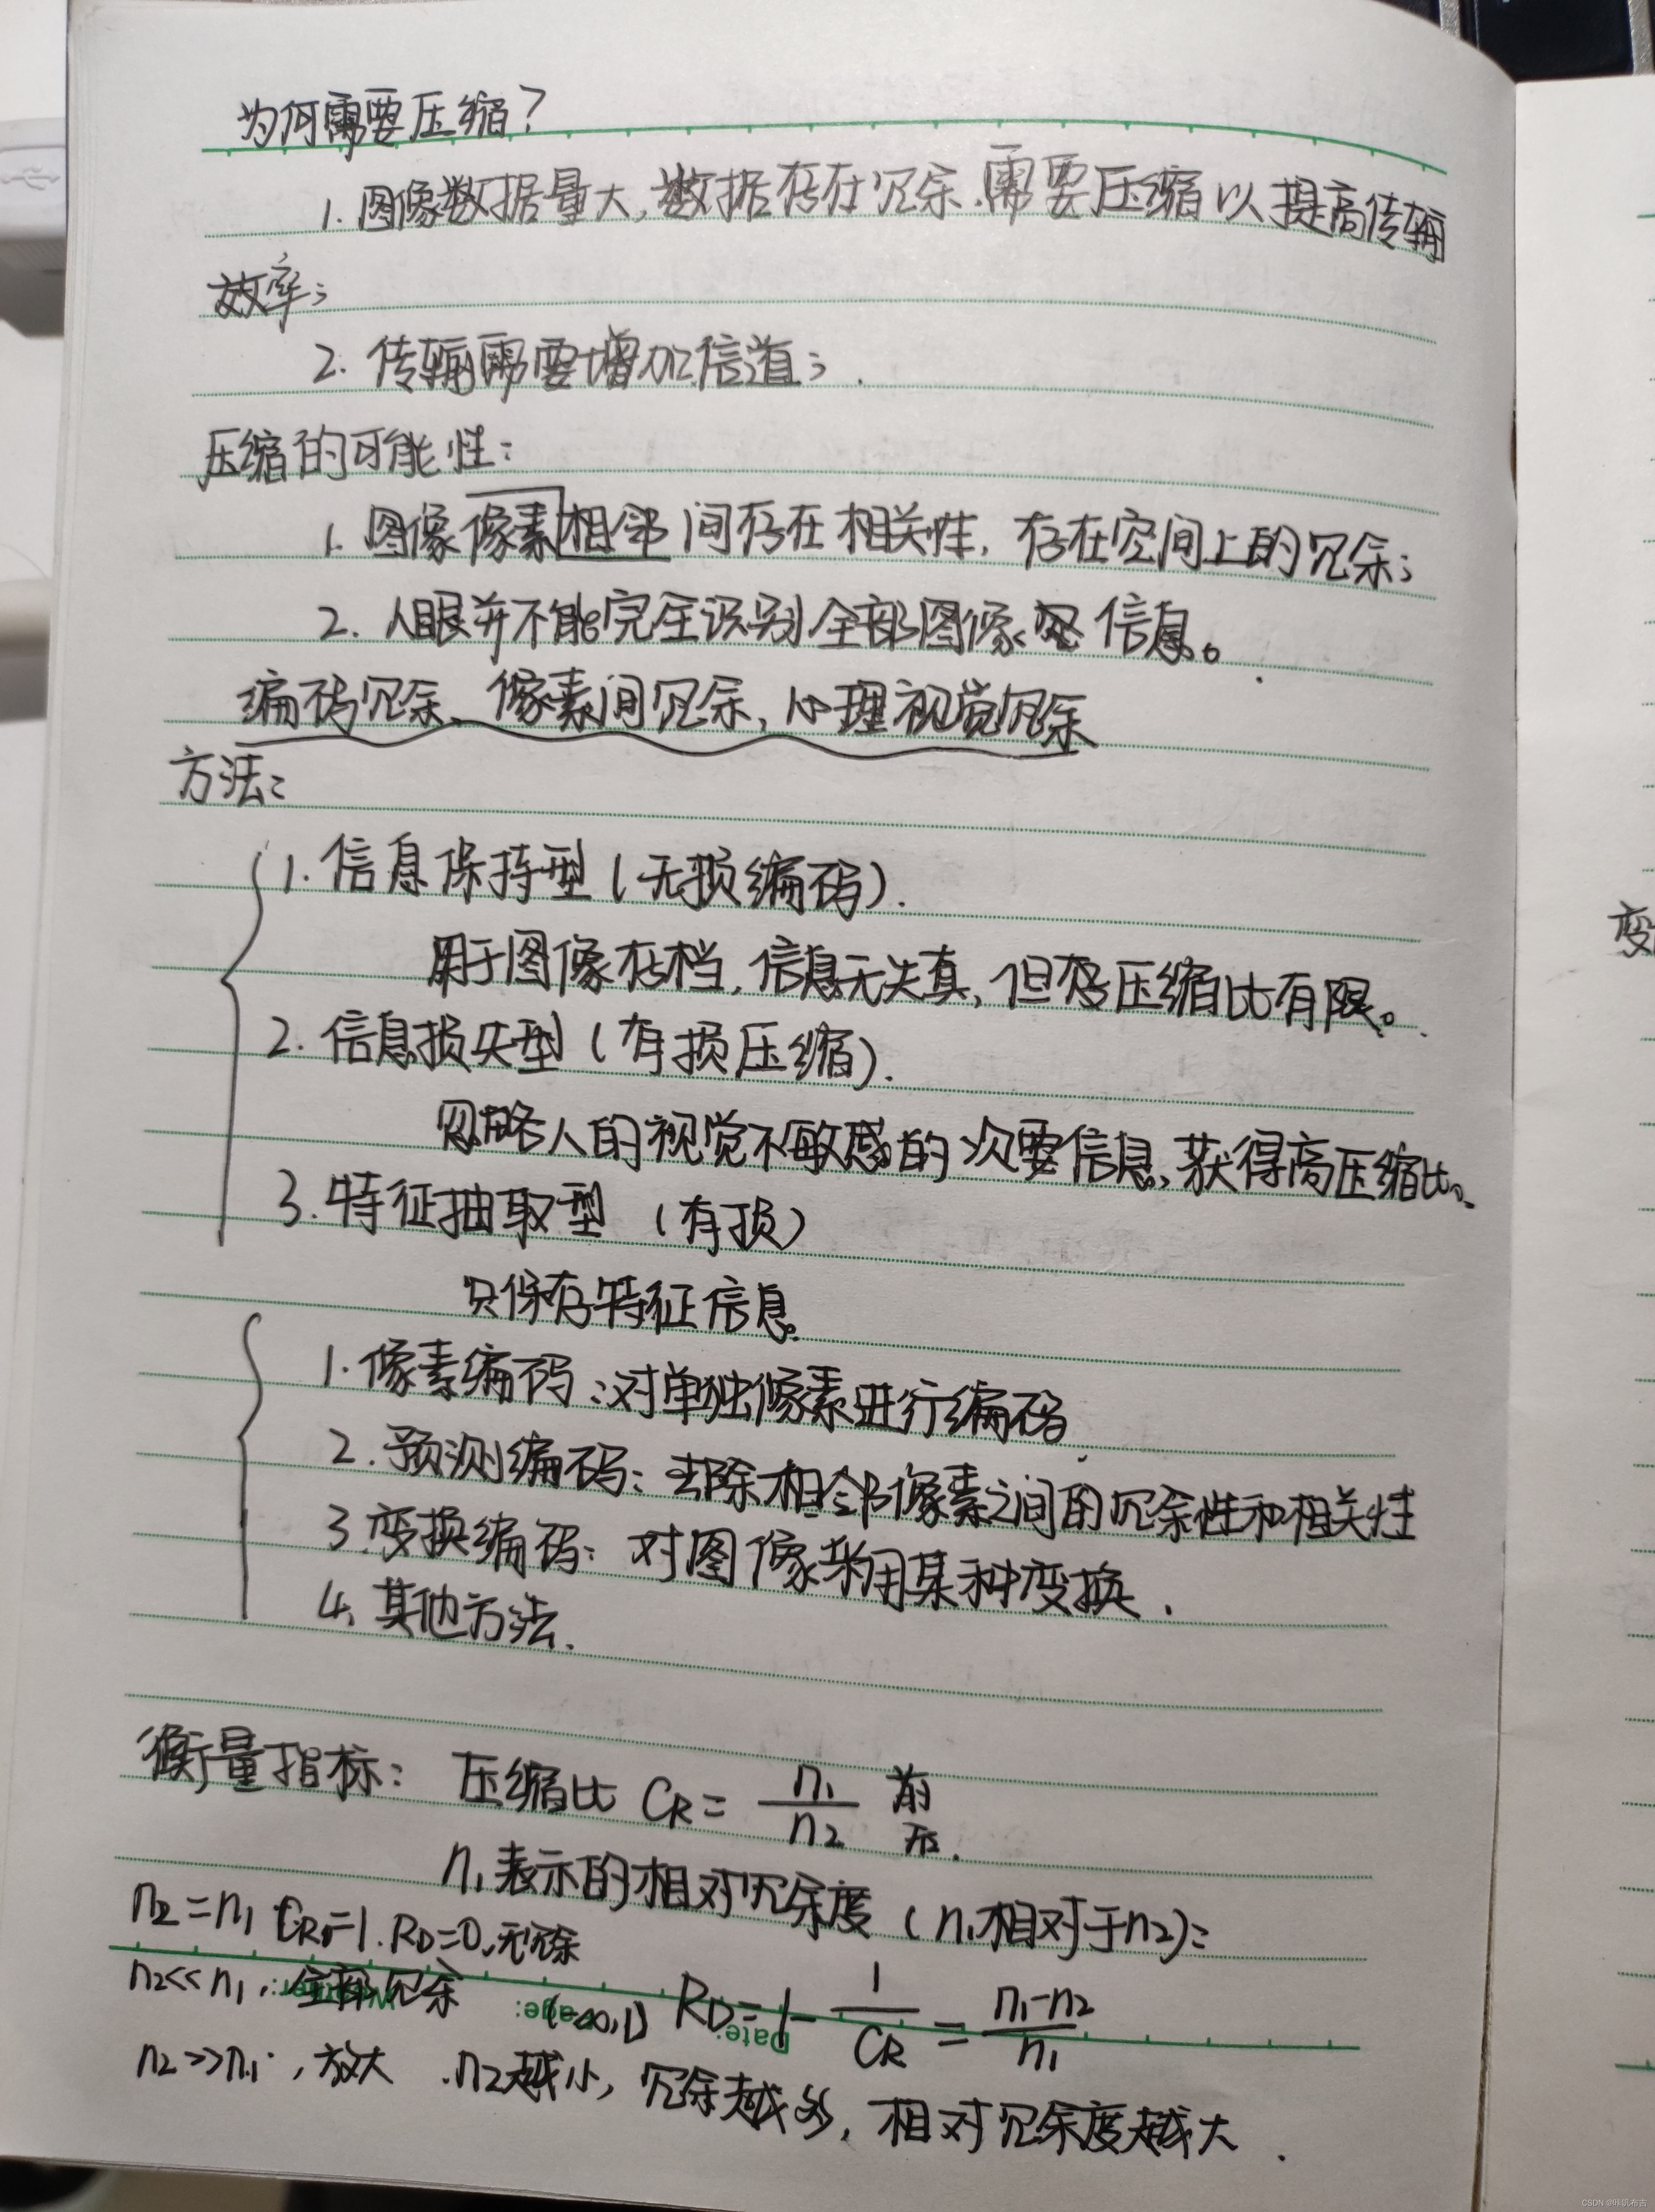 为何需要压缩?
1. 图像数据量大,数据存在冗余.需要压缩以提高传输
效率;
2. 传输需要增加信道;
压缩的可能性:
1. 图像像素相邻间存在相关性,存在空间上的冗余;
2. 人眼并不能完全识别全部图像信息。
编码冗余、像素间冗余,心理视觉冗余
方法:
1. 信息保持型(无损编码).
用于图像存档,信息无失真,但压缩比有限。
2. 信息损失型(有损压缩).
忽略人的视觉不敏感的次要信息,获得高压缩比。
3. 特征抽取型 (有损)
只保存特征信息。
1. 像素编码:对单独像素进行编码
2. 预测编码:去除相邻像素之间的冗余性和相关性
3. 变换编码:对图像采用某种变换.
4. 其他方法.
变
衡量指标: 压缩比 CR = n1/n2 前 后.
n1表示的相对冗余度(n1相对于n2):
n2=n1 CR=1. RD=0,无冗余
n2<<n1, 全部冗余
(-∞,1) RD=1-1/CR = (n1-n2)/n1
Date:
n2>>n1, 放大 .n2越小, 冗余越多, 相对冗余度越大.
CSDN